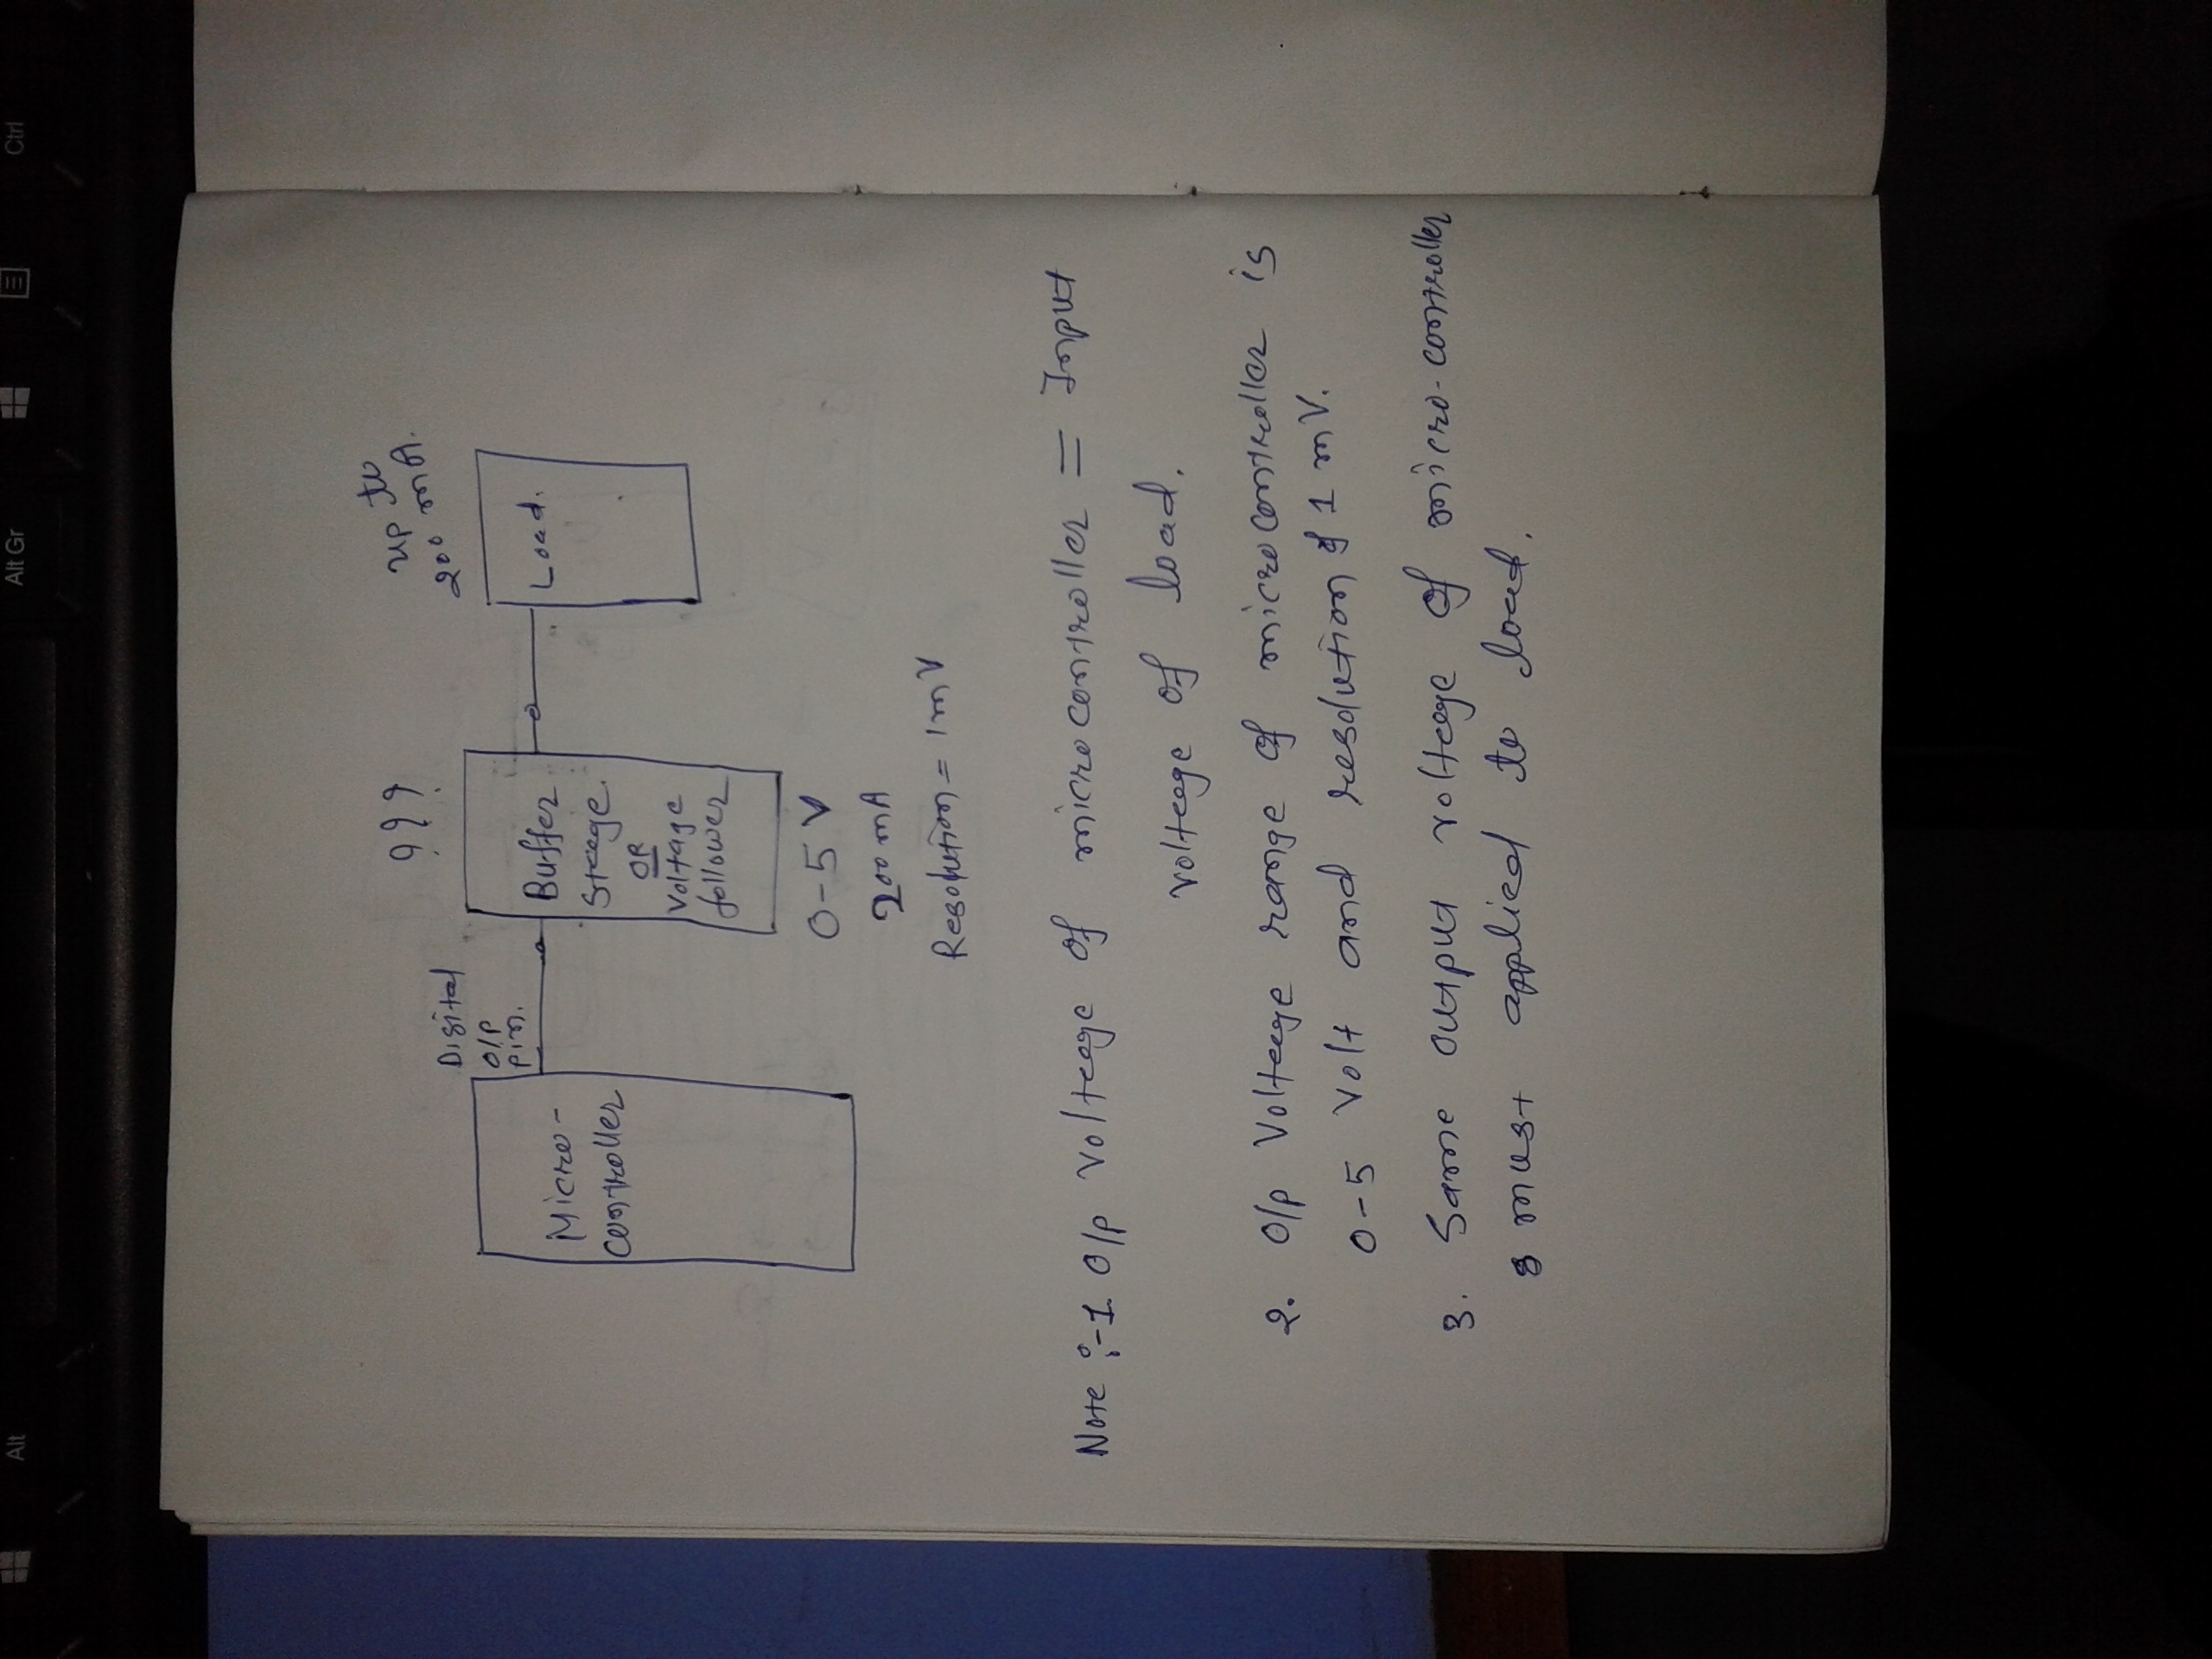 Digital
O/P
Pin.
???
up to
200 mA.
Micro-
controller
Buffer
Steage
OR
Voltage
follower
Load.
0-5 V
200 mA
Resolution = 1mV
Note :-1. O/P Volteage of microcontroller = Input
volteage of load.
2. O/P Volteage range of microcontroller is
0-5 Volt and resolution of 1 mV.
3. Same output volteage of micro-controller
must applied to load.
Ctrl
Alt Gr
Alt